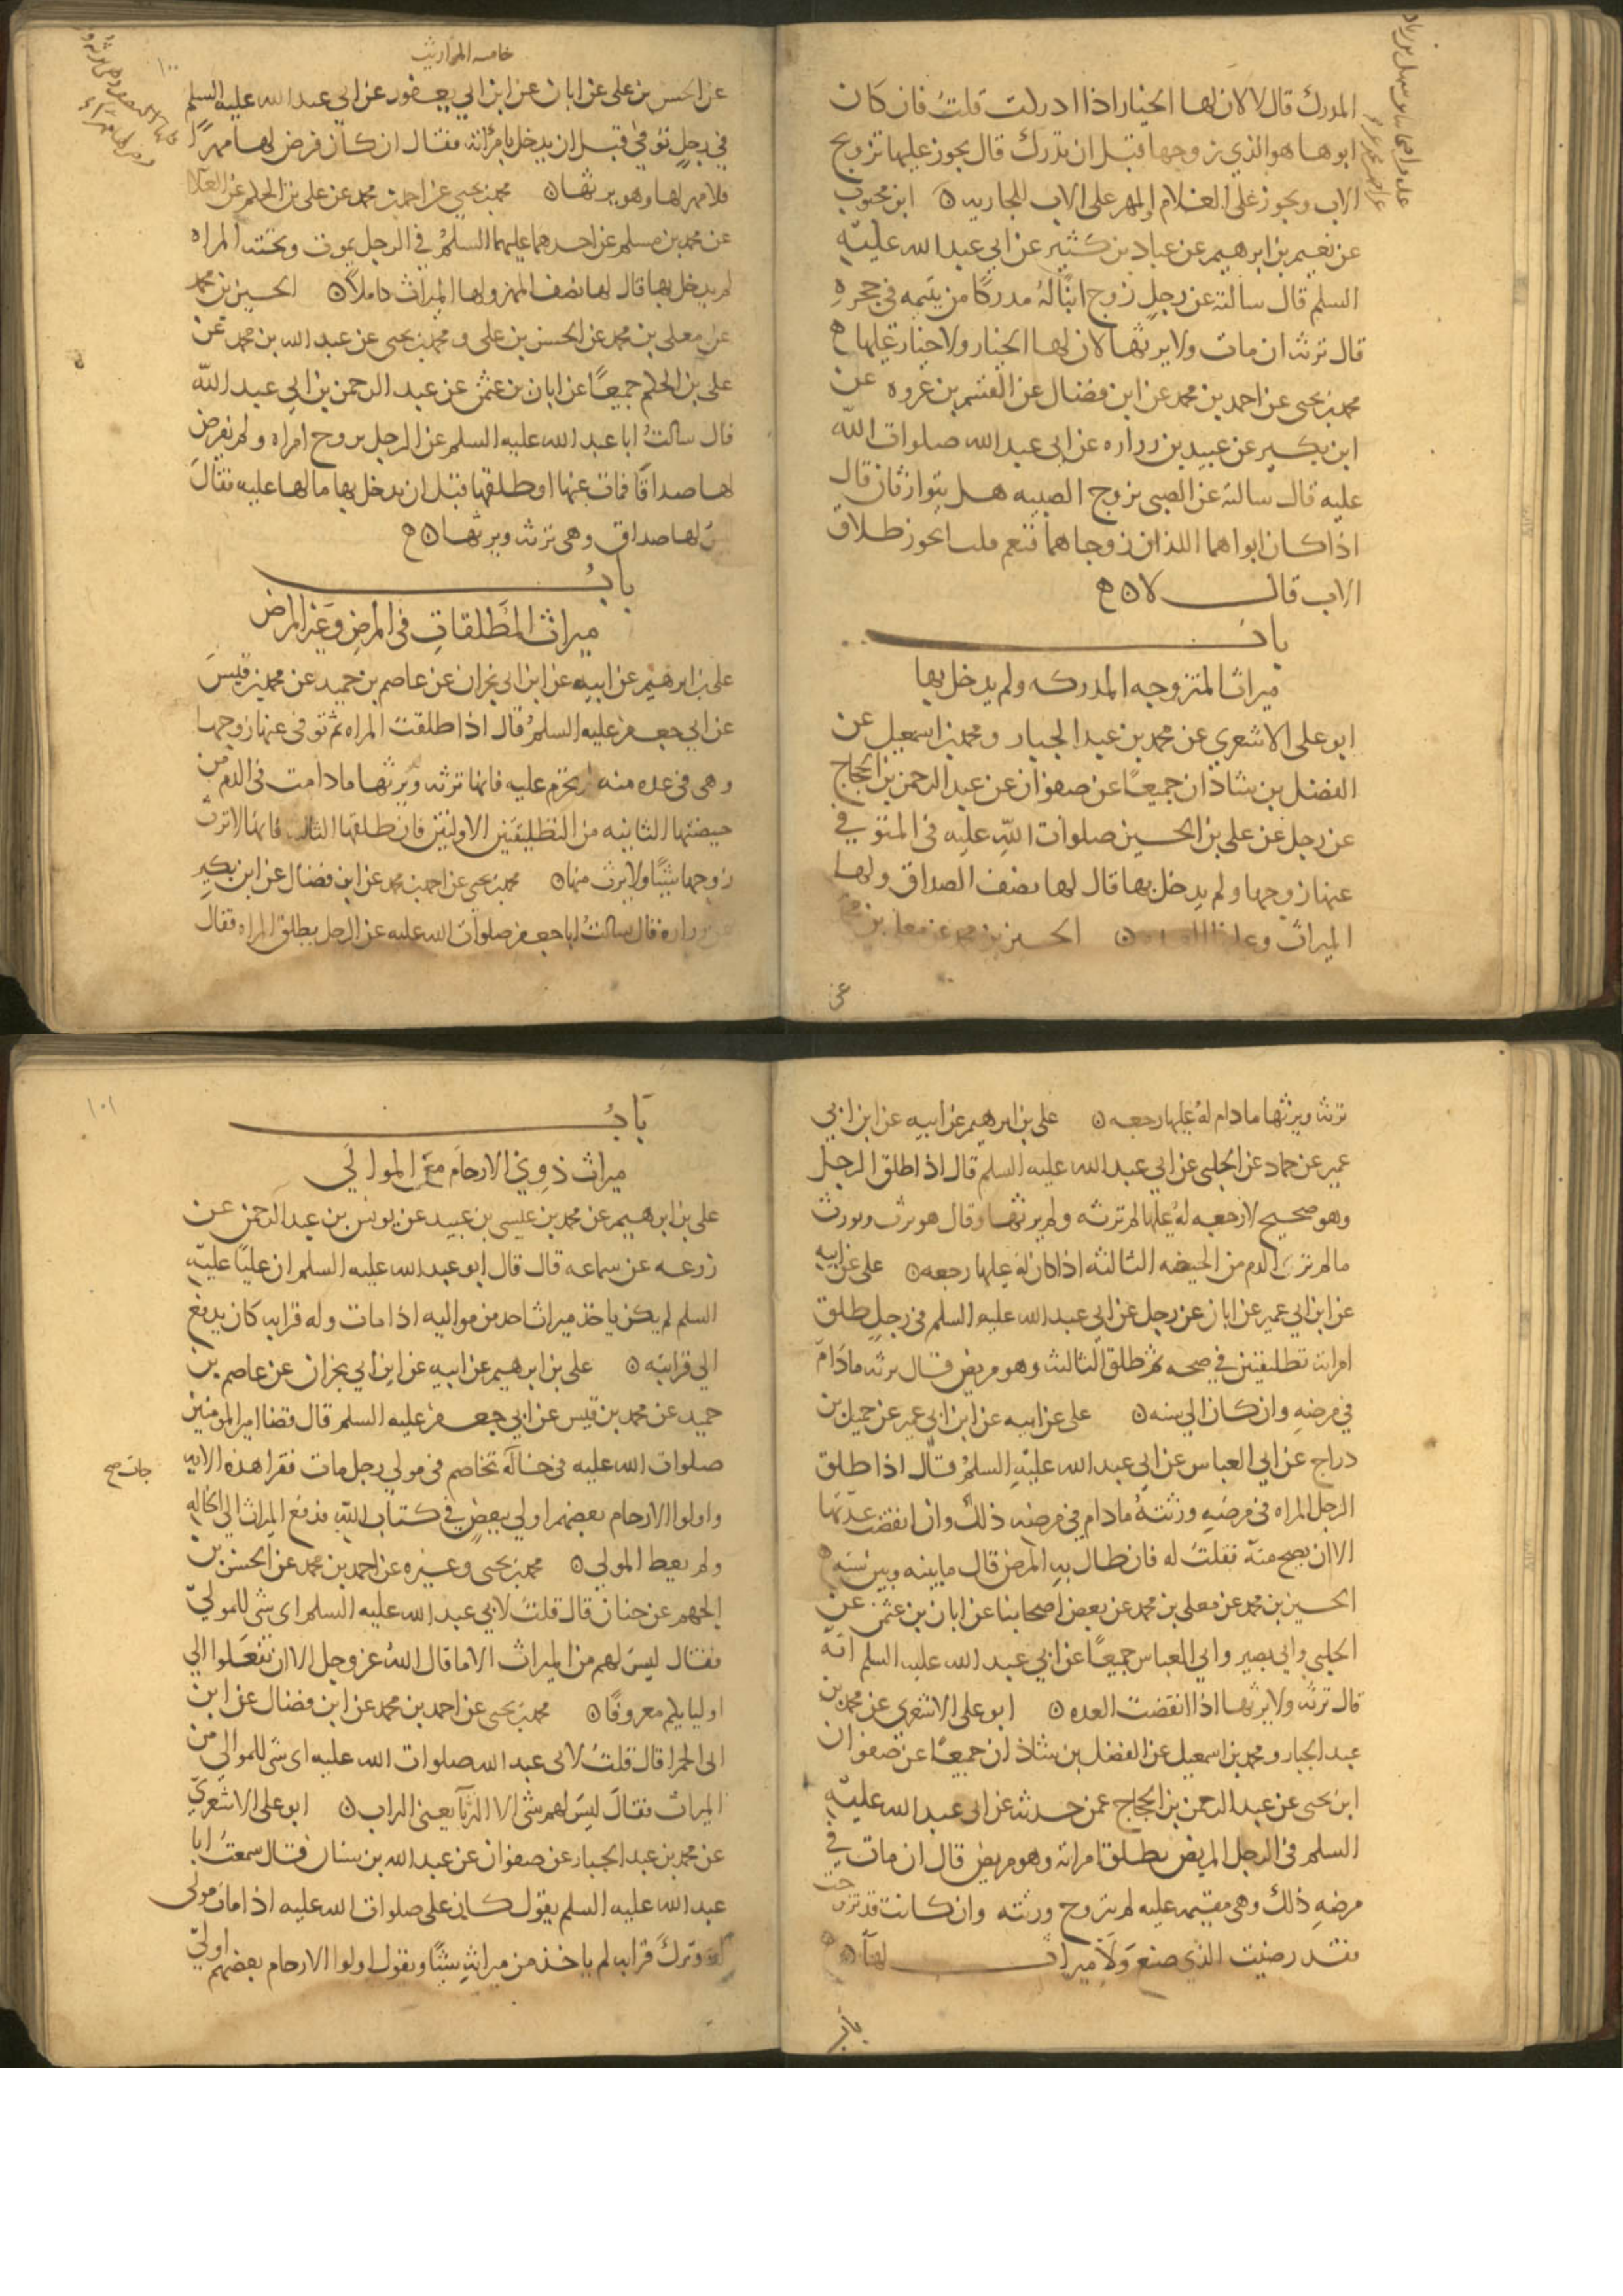 المدرك قال لا لان لها الخيار اذا ادركت قلت فان كان
ابوها هو الذي زوجها قبل ان تدرك قال يجوز عليها تزويج
الاب ويجوز على الغلام والمهر على الاب للجاريه ن ابن محبوب
عن نعيم بن ابرهيم عن عباد بن كثير عن ابي عبد الله عليه
السلم قال سالته عن رجل زوج ابنا له مدركا من يتيمه في حجره
قال ترثه ان مات ولا يرثها لان لها الخيار ولا خيار عليها ه
محمد بن يحيى عن احمد بن محمد عن ابن فضال عن القسم بن عروه عن
ابن بكير عن عبيد بن زراره عن ابي عبد الله صلوات الله
عليه قال سالته عن الصبي يزوج الصبيه هل يتوارثان قال
اذا كان ابواهما اللذان زوجاهما فنعم قلت ايجوز طلاق
الاب قال لا ن ه
باب
ميراث المتزوجه المدركه ولم يدخل بها
ابو علي الاشعري عن محمد بن عبد الجبار ومحمد بن اسمعيل عن
الفضل بن شاذان جميعا عن صفوان عن عبد الرحمن بن الحجاج
عن رجل عن علي بن الحسين صلوات الله عليه في المتوفي
عنها زوجها ولم يدخل بها قال لها نصف الصداق ولها
الميراث وعليها العده ن الحسين بن محمد عن معلى بن محمد
عن
خامسه المواريث
١٠٠
عن الحسن بن علي عن ابان عن ابن ابي يعفور عن ابي عبد الله عليه السلم
في رجل توفي قبل ان يدخل بامراته فقال ان كان فرض لها مهرا
فلها مهرها وهو يرثها ن محمد بن يحيى عن احمد بن محمد عن علي بن الحكم عن العلا
عن محمد بن مسلم عن احدهما عليهما السلم في الرجل يموت وتحته المراه
لم يدخل بها قال لها نصف المهر ولها الميراث كاملا ن الحسين بن محمد
عن معلى بن محمد عن الحسن بن علي و محمد بن يحيى عن عبد الله بن محمد عن
علي بن الحكم جميعا عن ابان بن عثمن عن عبد الرحمن بن ابي عبد الله
قال سالت ابا عبد الله عليه السلم عن الرجل يزوج امراه ولم يفرض
لها صداقا فمات عنها او طلقها قبل ان يدخل بها ما لها عليه فقال
ليس لها صداق وهي ترثه ويرثها ن ه
باب
ميراث المطلقات في المرض وغير المرض
علي بن ابرهيم عن ابيه عن ابن ابي نجران عن عاصم بن حميد عن محمد بن قيس
عن ابي جعفر عليه السلم قال اذا طلقت المراه ثم توفي عنها زوجها
وهي في عده منه لم تحرم عليه فانها ترثه ويرثها ما دامت في الدم من
حيضتها الثانيه من التطليقتين الاولتين فان طلقها الثالثه فانها لا ترث
زوجها شيئا ولا يرث منها ن محمد بن يحيى عن احمد بن محمد عن ابن فضال عن ابن بكير
عن زراره قال سالت ابا جعفر صلوات الله عليه عن الرجل يطلق المراه فقال
ترثه ويرثها ما دام له عليها رجعه ن علي بن ابرهيم عن ابيه عن ابن ابي
عمير عن حماد عن الحلبي عن ابي عبد الله عليه السلم قال اذا طلق الرجل
وهو صحيح لا رجعه له عليها لم ترثه ولم يرثها وقال هو يرث ويورث
ما لم تر الدم من الحيضه الثالثه اذا كان له عليها رجعه ن علي عن ابيه
عن ابن ابي عمير عن ابان عن رجل عن ابي عبد الله عليه السلم في رجل طلق
امراته تطليقتين في صحه ثم طلق الثالث وهو مريض قال ترثه ما دام
في مرضه وان كان الى سنه ن علي عن ابيه عن ابن ابي عمير عن جميل بن
دراج عن ابي العباس عن ابي عبد الله عليه السلم قال اذا طلق
الرجل المراه في مرضه ورثته ما دام في مرضه ذلك وان انقضت عدتها
الا ان يصح منه فقلت له فان طال به المرض قال ما بينه وبين سنه ه
الحسين بن محمد عن معلى بن محمد عن بعض اصحابنا عن ابان بن عثمن عن
الحلبي وابي بصير وابي العباس جميعا عن ابي عبد الله عليه السلم انه
قال ترثه ولا يرثها اذا انقضت العده ن ابو علي الاشعري عن محمد بن
عبد الجبار ومحمد بن اسمعيل عن الفضل بن شاذان جميعا عن صفوان
ابن يحيى عن عبد الرحمن بن الحجاج عمن حدثه عن ابي عبد الله عليه
السلم في الرجل المريض يطلق امراته وهو مريض قال ان مات في
مرضه ذلك وهي مقيمه عليه لم تتزوج ورثته وان كانت قد تزوجت
فقد رضيت الذي صنع ولا ميراث لها ن ه
باب
١٠١
باب
ميراث ذوي الارحام مع الموالي
علي بن ابرهيم عن محمد بن عيسى بن عبيد عن يونس بن عبد الرحمن عن
زرعه عن سماعه قال قال ابو عبد الله عليه السلم ان عليا عليه
السلم لم يكن ياخذ ميراث احد من مواليه اذا مات وله قرابه كان يدفع
الى قرابته ن علي بن ابرهيم عن ابيه عن ابن ابي نجران عن عاصم بن
حميد عن محمد بن قيس عن ابي جعفر عليه السلم قال قضا امير المومنين
صلوات الله عليه في خاله تخاصم في مولى رجل مات فقرا هذه الايه
جات صح
واولوا الارحام بعضهم اولى ببعض في كتاب الله فدفع الميراث الى الخاله
ولم يعط المولى ن محمد بن يحيى وغيره عن احمد بن محمد عن الحسن بن
الجهم عن حنان قال قلت لابي عبد الله عليه السلم اي شي للموالي
فقال ليس لهم من الميراث الا ما قال الله عز وجل الا ان تفعلوا الى
اوليايكم معروفا ن محمد بن يحيى عن احمد بن محمد عن ابن فضال عن ابن
ابي الحمرا قال قلت لابي عبد الله صلوات الله عليه اي شي للموالي من
الميراث فقال ليس لهم شي الا الترباء يعني التراب ن ابو علي الاشعري
عن محمد بن عبد الجبار عن صفوان عن عبد الله بن سنان قال سمعت ابا
عبد الله عليه السلم يقول كان علي صلوات الله عليه اذا مات مولى
له وترك قرابه لم ياخذ من ميراثه شيئا ويقول اولوا الارحام بعضهم اولى